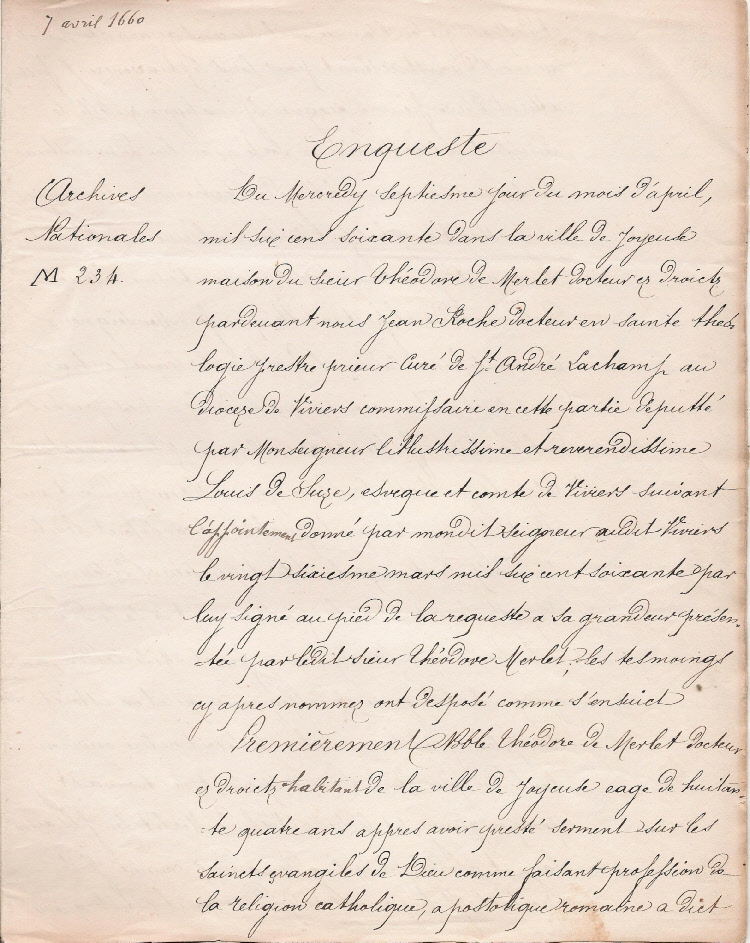 7 avril 1660
Enqueste
Archives
Nationales
M 234.
Du Mercredy septiesme jour du mois d'april,
mil six cens soixante dans la ville de Joyeuse
maison du sieur Théodore de Merlet docteur ez droictz
pardevant nous Jean Roche docteur en sainte théo
logie prestre prieur Curé de St André Lachamp au
dioceze de Viviers commissaire en cette partie deputté
par Monseigneur l'illustrissime et reverendissime
Louis de Suze, esveque et comte de Viviers suivant
l'appointement donné par mondit seigneur audit Viviers
le vingt sixiesme mars mil six cent soixante par
luy signé au pied de la requeste a sa grandeur présen-
tée par ledit sieur Théodore Merlet, les tesmoings
cy apres nommez ont desposé comme s'ensuict
Premièrement Noble Théodore de Merlet docteur
ez droictz habitant de la ville de Joyeuse eage de huitan-
te quatre ans appres avoir presté serment sur les
saincts évangiles de Dieu comme faisant profession de
la religion catholique, apostolique romaine a dict